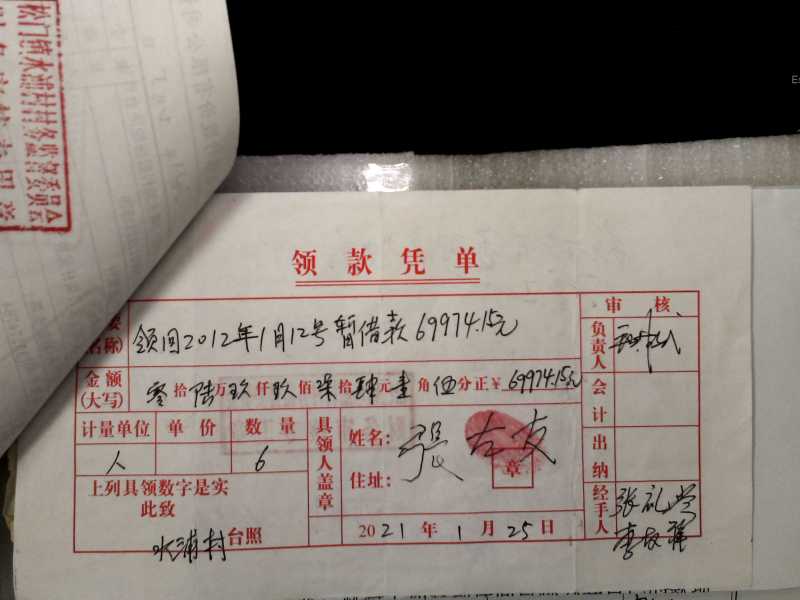 松门镇水浦村村务监督委员会
领款凭单
领回2012年1月12号暂借款69974.15元
名称)
审核
负责人
金额(大写) 零拾陆万玖仟玖佰柒拾肆元壹角伍分正¥69974.15元
会计
计量单位 单价 数量
人 6
具领人盖章
姓名: 張左友
章
住址:
出纳
上列具领数字是实
此致
水浦村台照
2021年1月25日
经手人 张礼兴